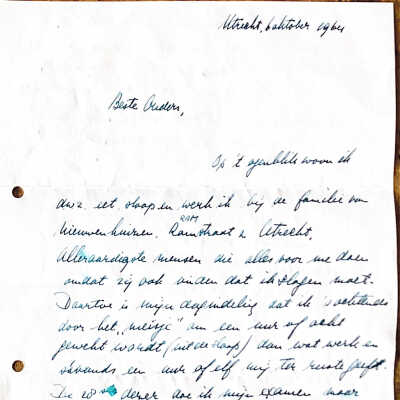 Utrecht, 6 oktober 1964
Beste Ouders,
Op 't ogenblik woon ik
d.w.z. eet, slaap en werk ik bij de familie van
Nieuwenhuizen, RAM
Ramstraat 2 Utrecht.
Alleraardigste mensen die alles voor me doen
omdat zij ook vinden dat ik slagen moet.
Daartoe is mijn dagindeling dat ik 's ochtends
door het „meisje" om een uur of acht
gewekt wordt (uit de slaap) dan wat werk en
's avonds een uur of elf mij ter ruste
De 28ste dezer doe ik mijn examen maar